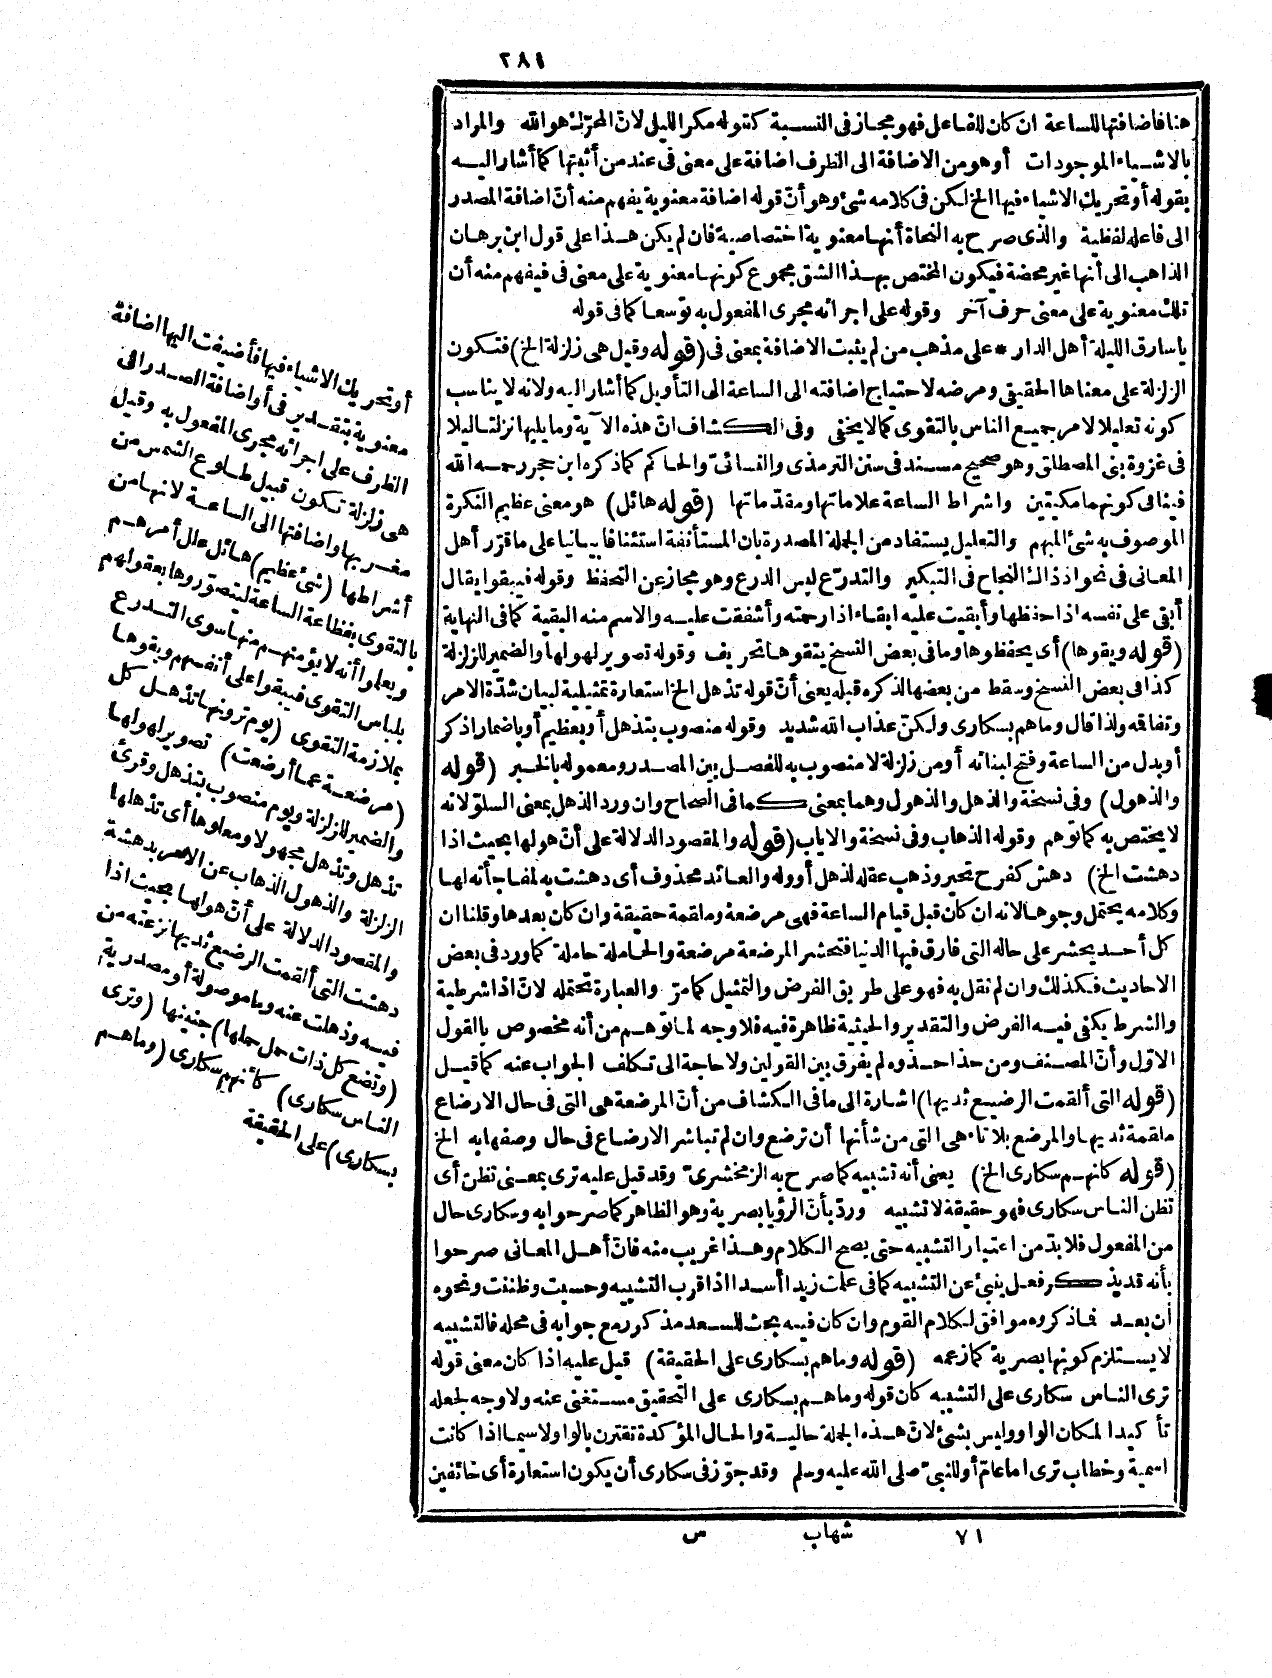 ٢٨١
هنا فأضافتها للساعة ان كان للفاعل فهو مجاز فى النسبة كقوله مكر الليل لانّ المحرّك هو الله والمراد
بالاشياء الموجودات أو هو من الاضافة الى الظرف اضافة على معنى فى عند من أثبتها كما أشار اليه
بقوله أو تحريك الاشياء فيها الخ لكن فى كلامه شئ وهو أنّ قوله اضافة معنوية يفهم منه أنّ اضافة المصدر
الى فاعله لفظية والذى صرح به النحاة أنها معنوية اختصاصية فان لم يكن هذا على قول ابن برهان
الذاهب الى أنها غير محضة فيكون المختص بهذا الشق مجموع كونها معنوية على معنى فى فيفهم منه أن
تلك معنوية على معنى حرف آخر وقوله على اجرائه مجرى المفعول به توسعا كما فى قوله
ياسارق الليلة أهل الدار * على مذهب من لم يثبت الاضافة بمعنى فى (قوله وقيل هى زلزلة الخ) فتكون
الزلزلة على معناها الحقيقى ومرضه لاحتياج اضافته الى الساعة الى التأويل كما أشار اليه ولانه لا يناسب
كونه تعليلا لامر جميع الناس بالتقوى كما لا يخفى وفى الكشاف انّ هذه الآية وما يليها نزلتا ليلا
فى غزوة بنى المصطلق وهو صحيح مسند فى سنن الترمذى والنسائىّ والحاكم كما ذكره ابن حجر رحمه الله
فينافى كونهما مكيتين واشراط الساعة علاماتها ومقدّماتها (قوله هائل) هو معنى عظيم النكرة
الموصوف به شئ المبهم والتعليل يستفاد من الجملة المصدرة بان المستأنفة استئنافا بيانيا على ما قرّر أهل
المعانى فى نحو اذ ذاك النجاح فى التبكير والتدرّع لبس الدرع وهو مجاز عن التحفظ وقوله فيبقوا يقال
أبقى على نفسه اذا حفظها وأبقيت عليه ابقاء اذا رحمته وأشفقت عليه والاسم منه البقية كما فى النهاية
(قوله ويقوها) أى يحفظوها وما فى بعض النسخ يتقوها تحريف وقوله تصوير لهولها والضمير للزلزلة
كذا فى بعض النسخ وسقط من بعضها لذكره قبله يعنى أنّ قوله تذهل الخ استعارة تمثيلية لبيان شدّة الامر
وتفاقه ولذا قال وما هم بسكارى ولكنّ عذاب الله شديد وقوله منصوب بتذهل أو بعظيم أو باضمار اذكر
أو بدل من الساعة وفتح لبنائه أو من زلزلة لا منصوب به للفصل بين المصدر ومعموله بالخبر (قوله
والذهول) وفى نسخة والذهل والذهول وهما بمعنى كما فى الصحاح وان ورد الذهل بمعنى السلوّ لانه
لا يختص به كما توهم وقوله الذهاب وفى نسخة والاياب (قوله والمقصود الدلالة على أنّ هولها بحيث اذا
دهشت الخ) دهش كفرح تحير وذهب عقله لذهل أو وله والعائد محذوف أى دهشت به لمفاجأته لها
وكلامه يحتمل وجوها لانه ان كان قبل قيام الساعة فهى مرضعة وملقمة حقيقة وان كان بعدها وقلنا ان
كل أحد يحشر على حاله التى فارق فيها الدنيا فتحشر المرضعة مرضعة والحاملة حاملة كما ورد فى بعض
الاحاديث فكذلك وان لم نقل به فهو على طريق الفرض والتمثيل كما مرّ والعبارة تحتمله لانّ اذا شرطية
والشرط يكفى فيه الفرض والتقدير والحيثية ظاهرة فيه فلا وجه لما توهم من أنه مخصوص بالقول
الاوّل وأنّ المصنف ومن حذا حذوه لم يفرق بين القولين ولا حاجة الى تكلف الجواب عنه كما قيل
(قوله التى ألقمت الرضيع ثديها) اشارة الى ما فى الكشاف من أنّ المرضعة هى التى فى حال الارضاع
ملقمة ثديها والمرضع بلا تاء هى التى من شأنها أن ترضع وان لم تباشر الارضاع فى حال وصفها به الخ
(قوله كانهم سكارى الخ) يعنى أنه تشبيه كما صرح به الزمخشرىّ وقد قيل عليه ترى بمعنى تظن أى
تظن الناس سكارى فهو حقيقة لا تشبيه وردّ بأنّ الرؤيا بصرية وهو الظاهر كما صرحوا به وسكارى حال
من المفعول فلا بدّ من اعتبار التشبيه حتى يصح الكلام وهذا غريب منه فانّ أهل المعانى صرحوا
بأنه قد يذكر فعل ينبئ عن التشبيه كما فى علمت زيدا أسدا اذا قرب التشبيه وحسبت وظننت ونحوه
أن بعد فاذكروه موافق لكلام القوم وان كان فيه بحث للسعد مذكور مع جوابه فى محله فالتشبيه
لا يستلزم كونها بصرية كما زعمه (قوله وما هم بسكارى على الحقيقة) قيل عليه اذا كان معنى قوله
ترى الناس سكارى على التشبيه كان قوله وما هم بسكارى على التحقيق مستغنى عنه ولا وجه لجعله
تأكيدا لمكان الواو وليس بشئ لانّ هذه الجملة حالية والحال المؤكدة تقترن بالواو لا سيما اذا كانت
اسمية وخطاب ترى اما عامّ أو للنبىّ صلى الله عليه وسلم وقد جوّز فى سكارى أن يكون استعارة أى خائفين
أو تحريك الاشياء فيها فأضيفت اليها اضافة
معنوية بتقدير فى أو اضافة المصدر الى
الظرف على اجرائه مجرى المفعول به وقيل
هى زلزلة تكون قبيل طلوع الشمس من
مغربها واضافتها الى الساعة لانها من
أشراطها (شئ عظيم) هائل علل أمرهم
بالتقوى بفظاعة الساعة ليتصوّروها بعقولهم
ويعلموا أنه لا يؤمنهم منها سوى التدرع
بلباس التقوى فيبقوا على أنفسهم ويقوها
بملازمة التقوى (يوم ترونها تذهل كل
مرضعة عما أرضعت) تصوير لهولها
والضمير للزلزلة ويوم منصوب بتذهل وقرئ
تذهل وتذهل مجهولا ومعلوما أى تذهلها
الزلزلة والذهول الذهاب عن الامر بدهشة
والمقصود الدلالة على أنّ هولها بحيث اذا
دهشت التى ألقمت الرضيع ثديها نزعته من
فيه وذهلت عنه وما موصولة أو مصدرية
(وتضع كل ذات حمل حملها) جنينها (وترى
الناس سكارى) كأنهم سكارى (وما هم
بسكارى) على الحقيقة
٧١ شهاب س